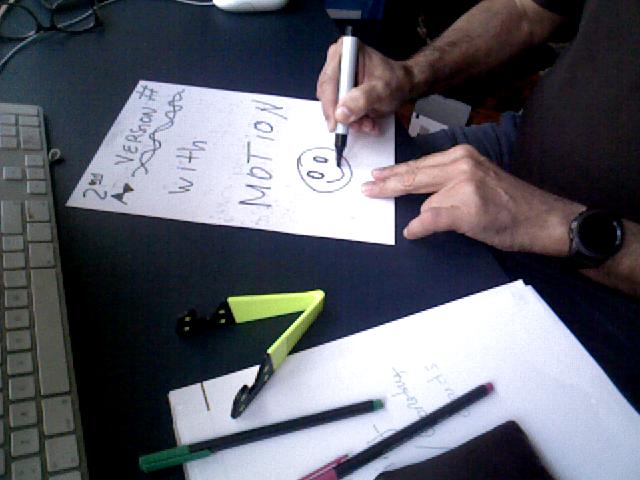 2nd VERSION #
with
MOTION
words